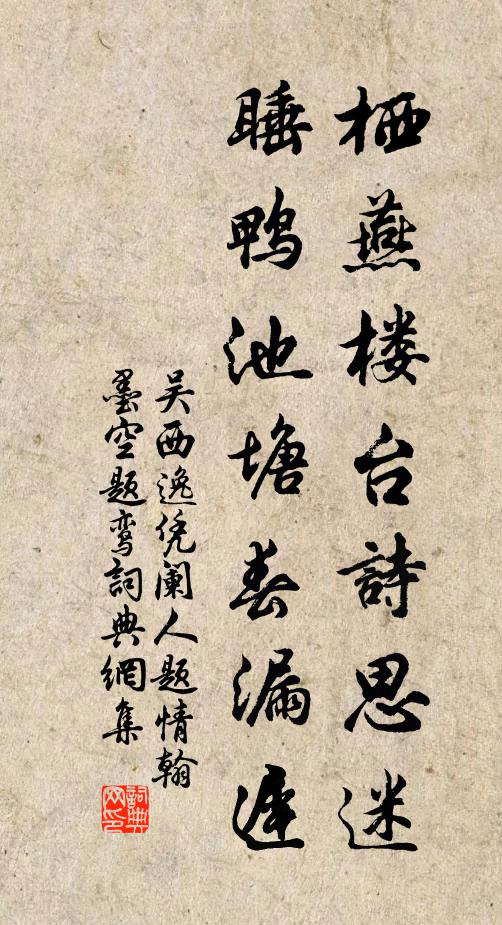 栖燕楼台詩思迷
睡鸭池塘春漏遲
吴西逸凭阑人题情翰
墨空题鸾詞典網集
詞典网印